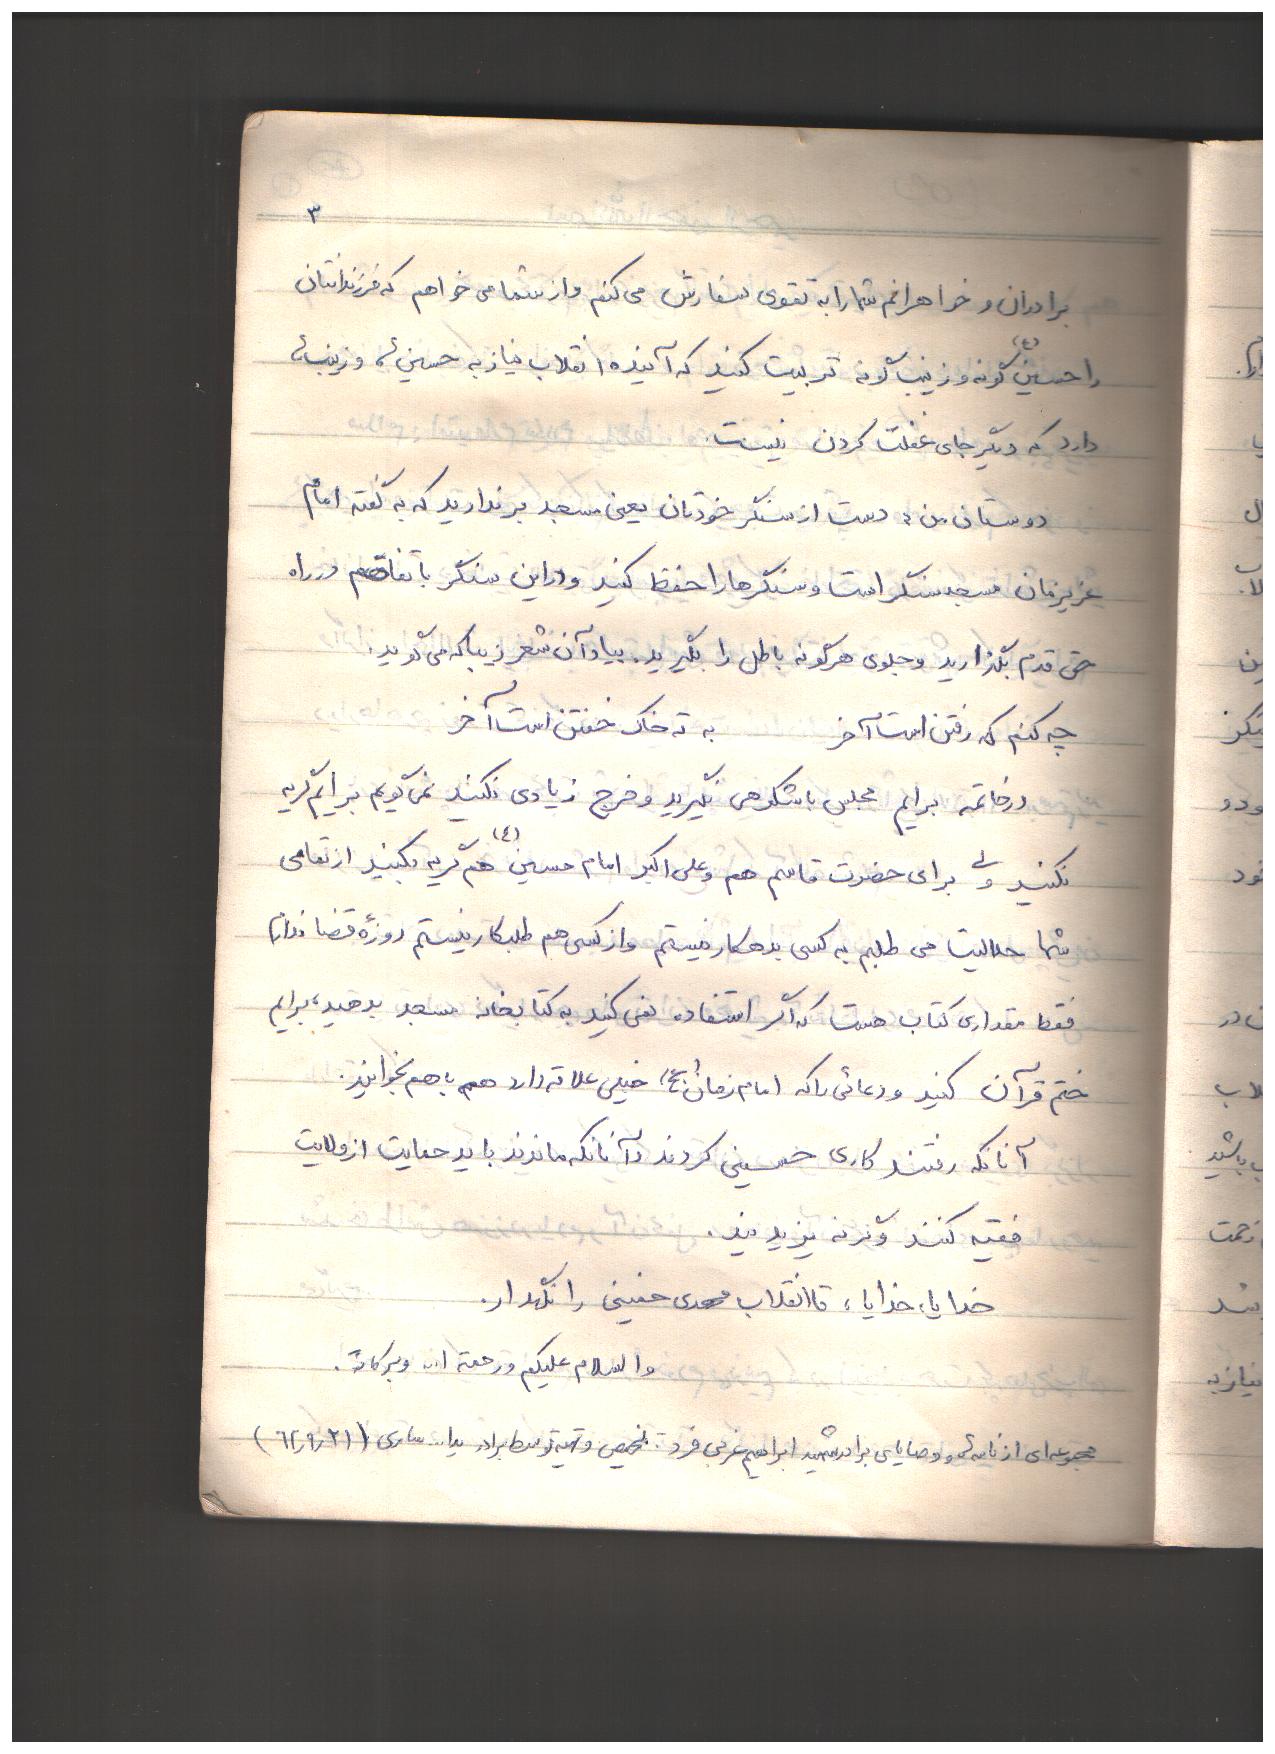 ۳
برادران و خواهرانم شما را به تقوی سفارش می کنم و از شما می خواهم که فرزندانتان
را حسین (ع) گونه و زینب گونه تربیت کنید که آینده انقلاب نیاز به حسین ها و زینب ها
دارد که دیگر جای غفلت کردن نیست.
دوستان من : دست از سنگر خودتان یعنی مسجد برندارید که به گفته امام
عزیزمان مسجد سنگر است و سنگرها را حفظ کنید و در این سنگر با تفاهم در راه
حق قدم بگذارید و جلوی هرگونه باطل را بگیرید. بیاد آن شعر زیبا که می گوید:
چه کنم که رفتن است آخر به ته خاک خفتن است آخر
در خاتمه برایم مجلس باشکوهی نگیرید و خرج زیادی نکنید نمی گویم برایم گریه
نکنید ولی برای حضرت قاسم هم و علی اکبر امام حسین (ع) هم گریه بکنید از تمامی
شما حلالیت می طلبم به کسی بدهکار نیستم و از کسی هم طلبکار نیستم روزهٔ قضا ندارم
فقط مقداری کتاب هست که اگر استفاده نمی کنید به کتابخانه مسجد بدهید، برایم
ختم قرآن کنید و دعائی را که امام زمان (عج) خیلی علاقه دارد هم باهم بخوانید.
آنانیکه رفتند کاری حسینی کردند و آنانکه ماندند باید حمایت از ولایت
فقیه کنند وگرنه یزیدیند.
خدایا، خدایا، تا انقلاب مهدی خمینی را نگهدار.
والسلام علیکم و رحمة الله و برکاته.
مجموعه ای از نامه ها و وصایای برادر شهید ابراهیم عربی فرد : تلخیص و تهیه توسط برادر ساری (۶۲/۹/۲۱)